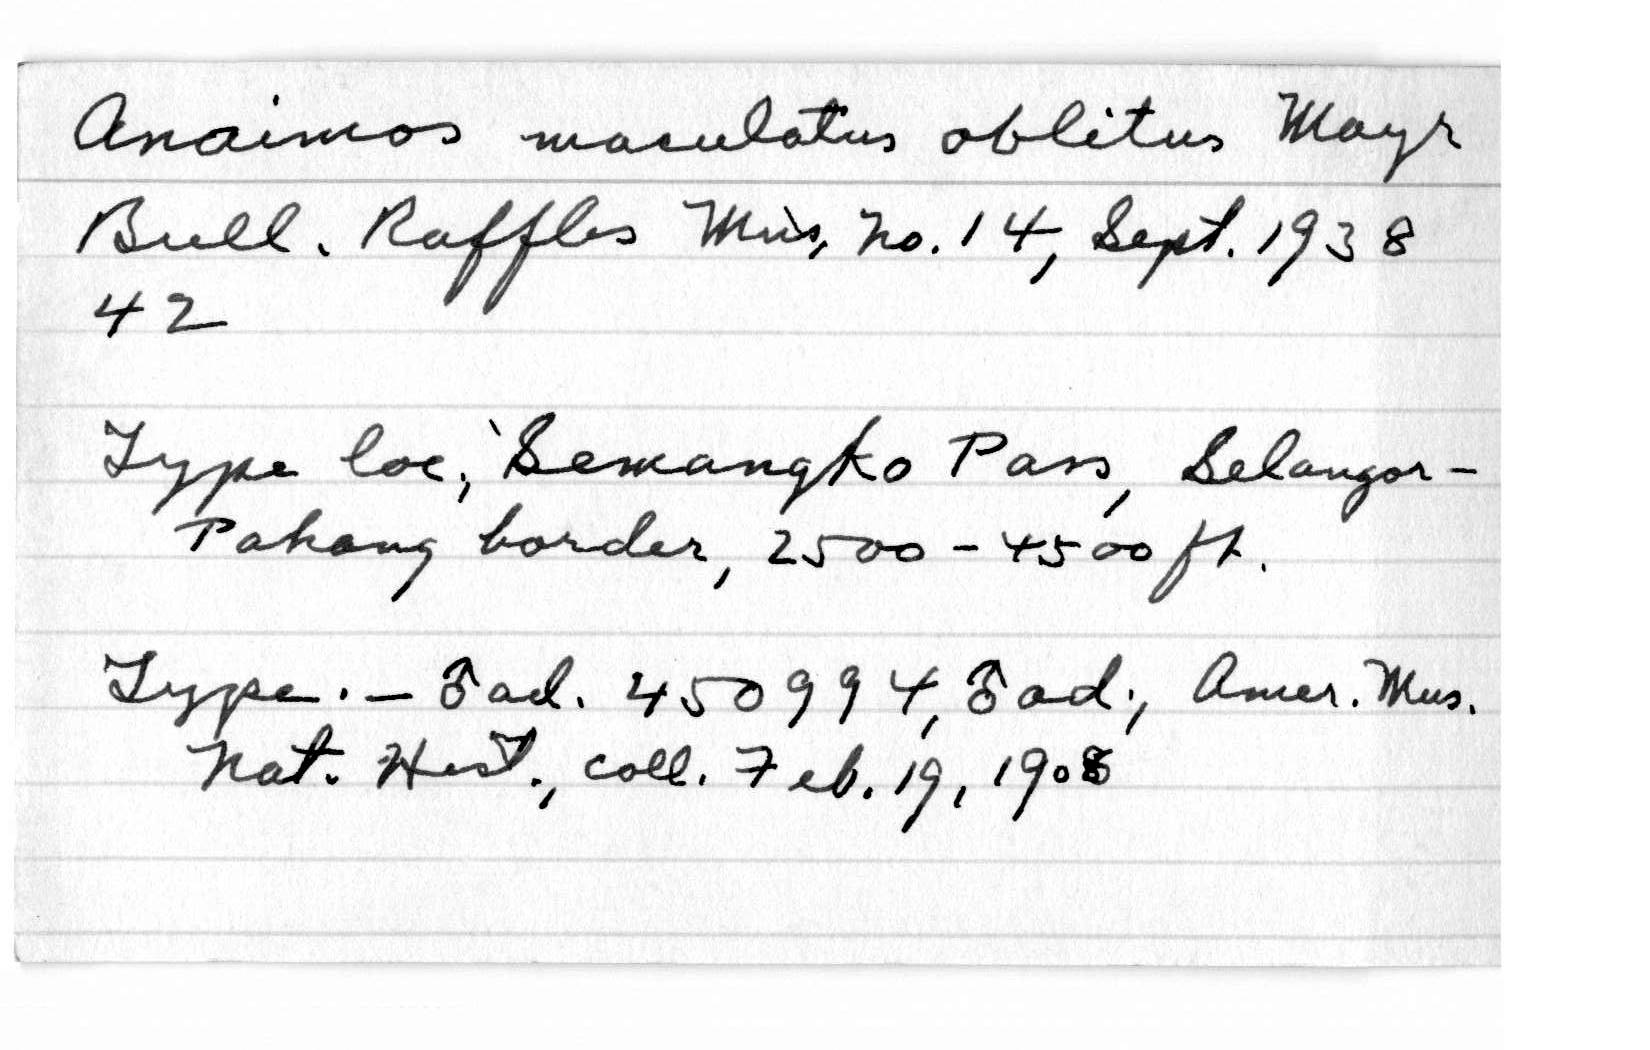 Anaimos maculatus oblitus Mayr
Bull. Raffles Mus, no. 14, Sept. 1938
42
Type loc, Semangko Pass, Selangor-
Pahang border, 2500-4500 ft.
Type.- ♂ ad. 450994, ♂ ad., Amer. Mus.
Nat. Hist., coll. Feb. 19, 1908